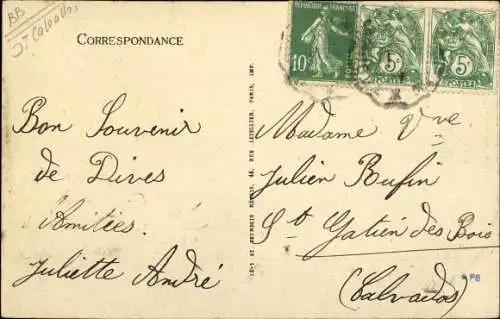 BB
Calvados
CORRESPONDANCE
REPUBLIQUE FRANÇAISE
10c
POSTES
5c
5c
Bon Souvenir
de Dives
Amitiées.
Juliette André
Madame Vve
Julien Rufin
St Gatien des Bois
(Calvados)
LÉVY ET NEURDEIN RÉUNIS, 44, RUE LETELLIER, PARIS, IMP.
PB